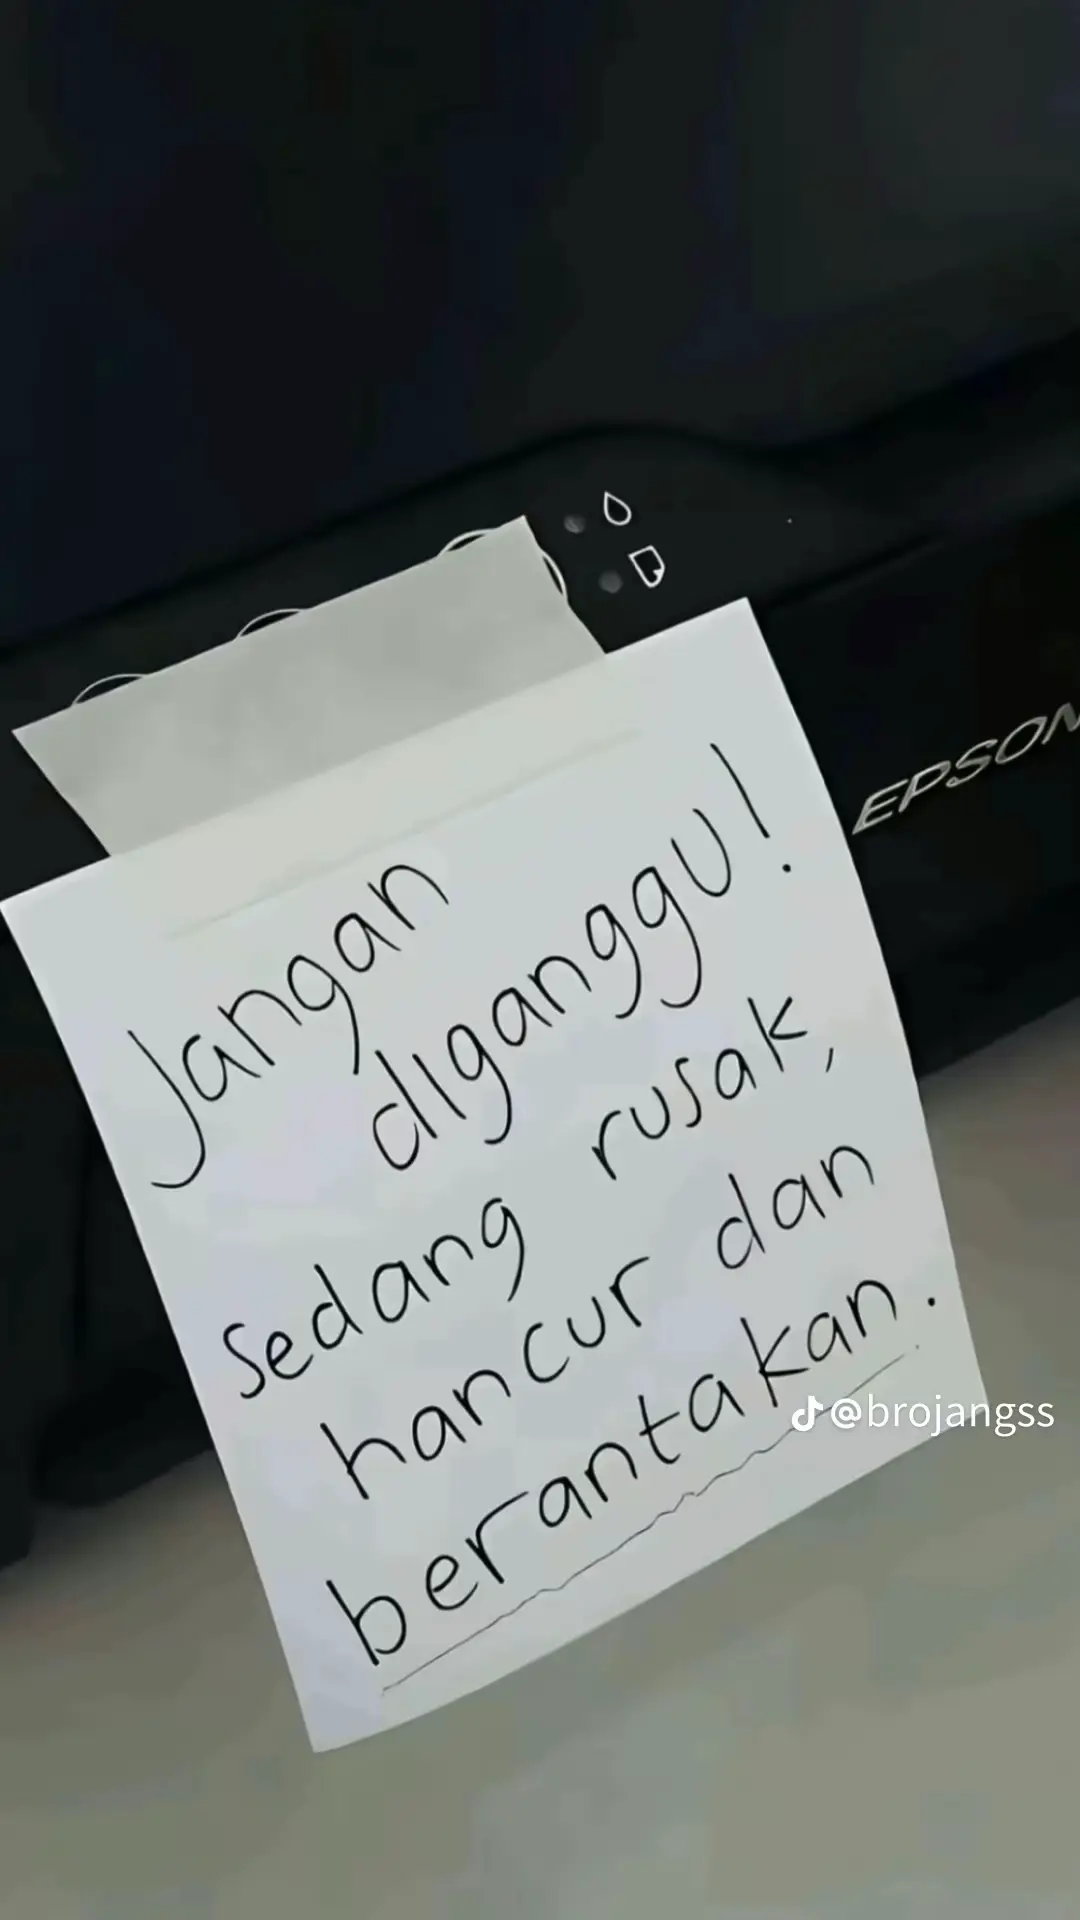 EPSON
Jangan
diganggu!
sedang rusak,
hancur dan
berantakan.
@brojangss